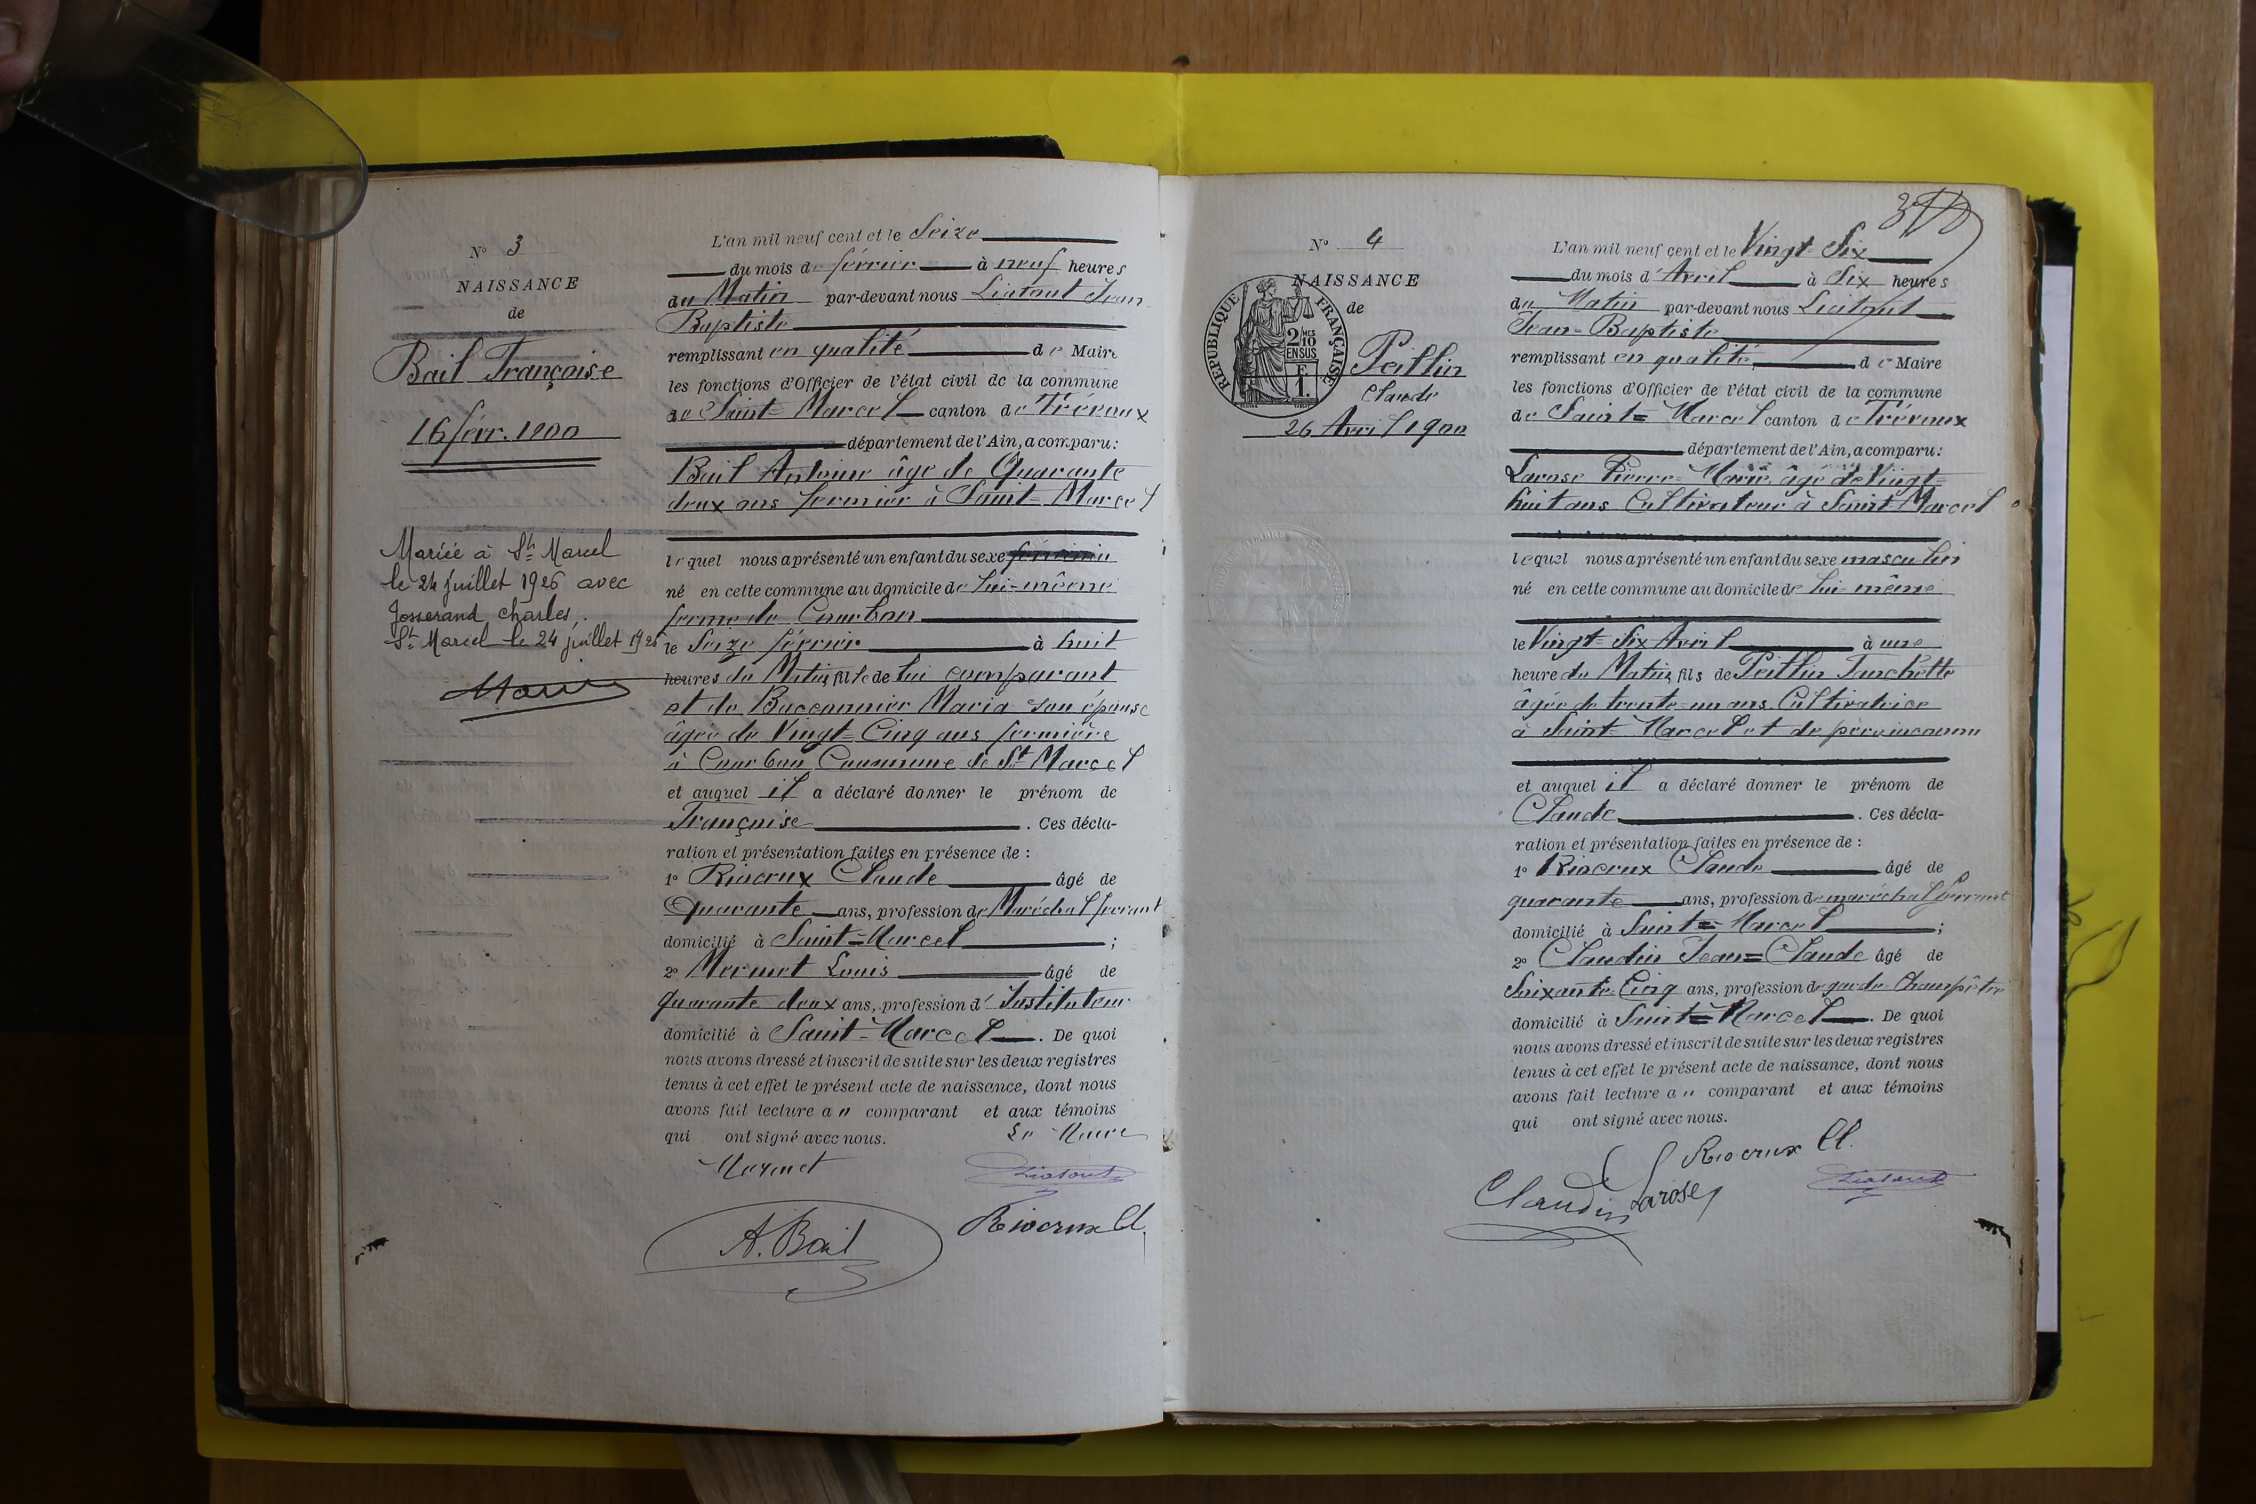 N° 3
NAISSANCE
de
Bail Françoise
16 févr. 1900
Mariée à St Marcel
le 24 juillet 1926 avec
Josserand Charles.
St Marcel le 24 juillet 1926
L'an mil neuf cent et le Seize
du mois de février à neuf heures
du Matin par-devant nous Liatout Jean
Baptiste
remplissant en qualité de Maire
les fonctions d'Officier de l'état civil de la commune
de Saint-Marcel canton de Trévoux
département de l'Ain, a comparu:
Bail Antoine âgé de Quarante
deux ans fermier à Saint-Marcel
lequel nous a présenté un enfant du sexe féminin
né en cette commune au domicile de lui-même
ferme de Courbon
le Seize février à huit
heures du Matin, fille de lui comparant
et de Buconnier Maria son épouse
âgée de Vingt-Cinq ans fermière
à Courbon Commune de St Marcel
et auquel il a déclaré donner le prénom de
Françoise. Ces décla-
ration et présentation faites en présence de :
1° Riocrux Claude âgé de
Quarante ans, profession de Maréchal ferrant
domicilié à Saint=Marcel ;
2° Mermet Louis âgé de
quarante deux ans, profession d' Instituteur
domicilié à Saint-Marcel. De quoi
nous avons dressé et inscrit de suite sur les deux registres
tenus à cet effet le présent acte de naissance, dont nous
avons fait lecture a " comparant et aux témoins
qui ont signé avec nous.
Le Maire
Mermet
Liatout
A. Bail
Riocrux Cl.
N° 4
NAISSANCE
de
RÉPUBLIQUE FRANÇAISE
2/10 MES
EN SUS
F.
1.
Peillin
Claude
26 Avril 1900
L'an mil neuf cent et le Vingt-Six
du mois d'Avril à Six heures
du Matin par-devant nous Liatout
Jean-Baptiste
remplissant en qualité de Maire
les fonctions d'Officier de l'état civil de la commune
de Saint=Marcel canton de Trévoux
département de l'Ain, a comparu:
Larose Pierre-Marie, âgé de Vingt-
huit ans Cultivateur à Saint-Marcel
lequel nous a présenté un enfant du sexe masculin
né en cette commune au domicile de lui même
le Vingt-Six Avril à une
heure du Matin, fils de Peillin
âgée de trente-un ans Cultivatrice
à Saint-Marcel et de père inconnu
et auquel il a déclaré donner le prénom de
Claude. Ces décla-
ration et présentation faites en présence de :
1° Riocrux Claude âgé de
quarante ans, profession de maréchal ferrant
domicilié à Saint=Marcel ;
2° Claudin Jean=Claude âgé de
Soixante-Cinq ans, profession de garde Champêtre
domicilié à Saint=Marcel. De quoi
nous avons dressé et inscrit de suite sur les deux registres
tenus à cet effet le présent acte de naissance, dont nous
avons fait lecture a " comparant et aux témoins
qui ont signé avec nous.
Riocrux Cl.
Claudin Larose
Liatout